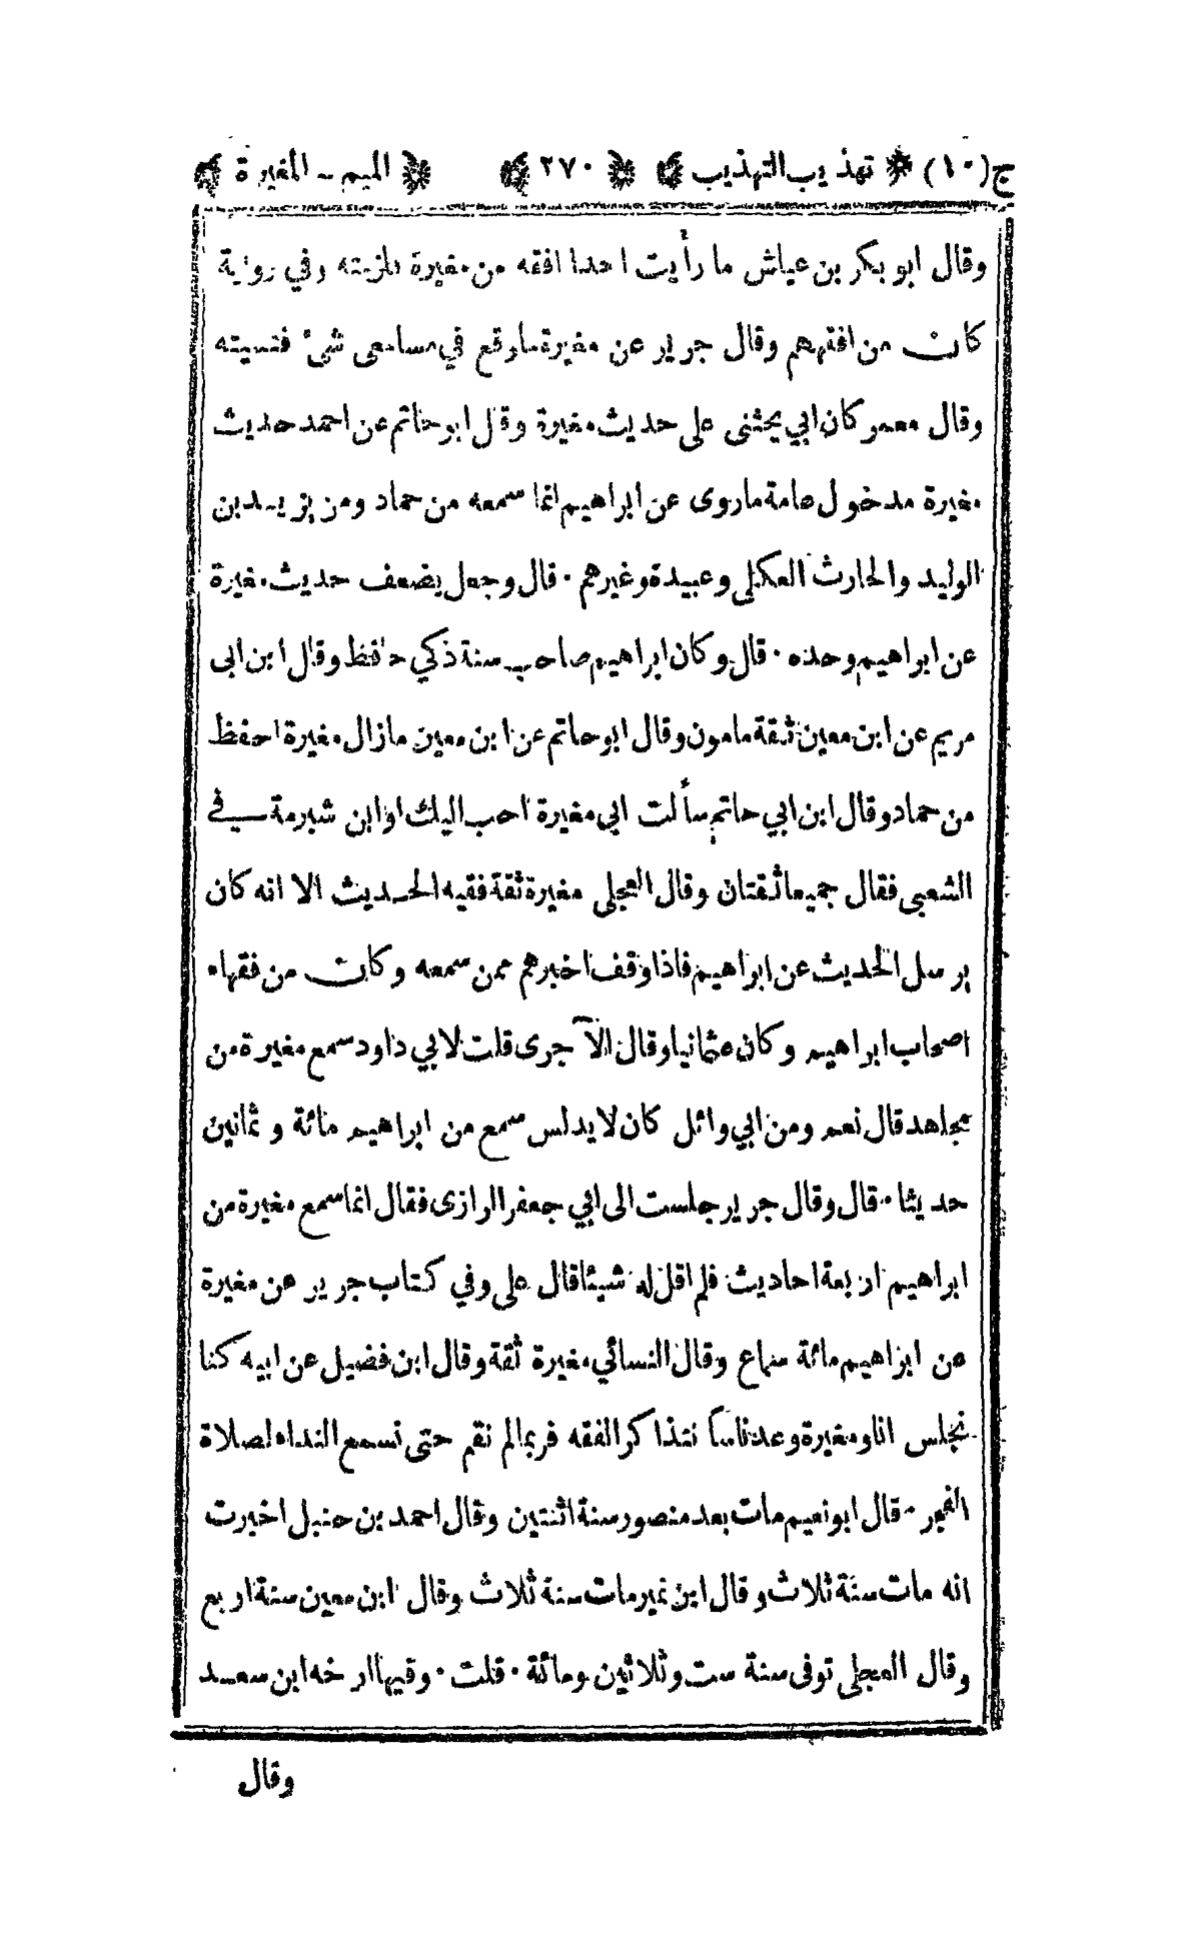 ج(١٠) * تهذيب التهذيب ﴾ ﴿ ٢٧٠ ﴾ ﴿ الميم - المغيرة ﴾
وقال ابو بكر بن عياش ما رأيت احدا افقه من مغيرة فلزمته وفي رواية
كان من افقههم وقال جرير عن مغيرة ما وقع في مسامعى شئ فنسيته
وقال معمر كان ابي يحثنى على حديث مغيرة وقال ابو حاتم عن احمد حديث
مغيرة مدخول عامة ماروى عن ابراهيم انما سمعه من حماد ومن يزيد بن
الوليد والحارث العكلى وعبيدة وغيرهم . قال وجعل يضعف حديث مغيرة
عن ابراهيم وحده . قال وكان ابراهيم صاحب سنة ذكي حافظ وقال ابن ابى
مريم عن ابن معين ثقة مامون وقال ابو حاتم عن ابن معين مازال مغيرة احفظ
من حماد وقال ابن ابي حاتم سألت ابي مغيرة احب اليك او ابن شبرمة في
الشعبى فقال جميعا ثقتان وقال العجلى مغيرة ثقة فقيه الحديث الا انه كان
يرسل الحديث عن ابراهيم فاذا وقف اخبرهم ممن سمعه وكان من فقهاء
اصحاب ابراهيم وكان عثمانيا وقال الآجرى قلت لابي داود سمع مغيرة من
مجاهد قال نعم ومن ابي وائل كان لا يدلس سمع من ابراهيم مائة وثمانين
حديثا . قال وقال جرير جلست الى ابي جعفر الرازى فقال انما سمع مغيرة من
ابراهيم اربعة احاديث فلم اقل له شيئا قال على وفي كتاب جرير عن مغيرة
عن ابراهيم مائة سماع وقال النسائي مغيرة ثقة وقال ابن فضيل عن ابيه كنا
نجلس انا ومغيرة وعد ناسا نتذاكر الفقه فربما لم نقم حتى نسمع النداء لصلاة
الفجر . قال ابو نعيم مات بعد منصور سنة اثنتين وقال احمد بن حنبل اخبرت
انه مات سنة ثلاث وقال ابن نمير مات سنة ثلاث وقال ابن معين سنة اربع
وقال العجلى توفى سنة ست وثلاثين ومائة . قلت . وفيها ارخه ابن سعد
وقال